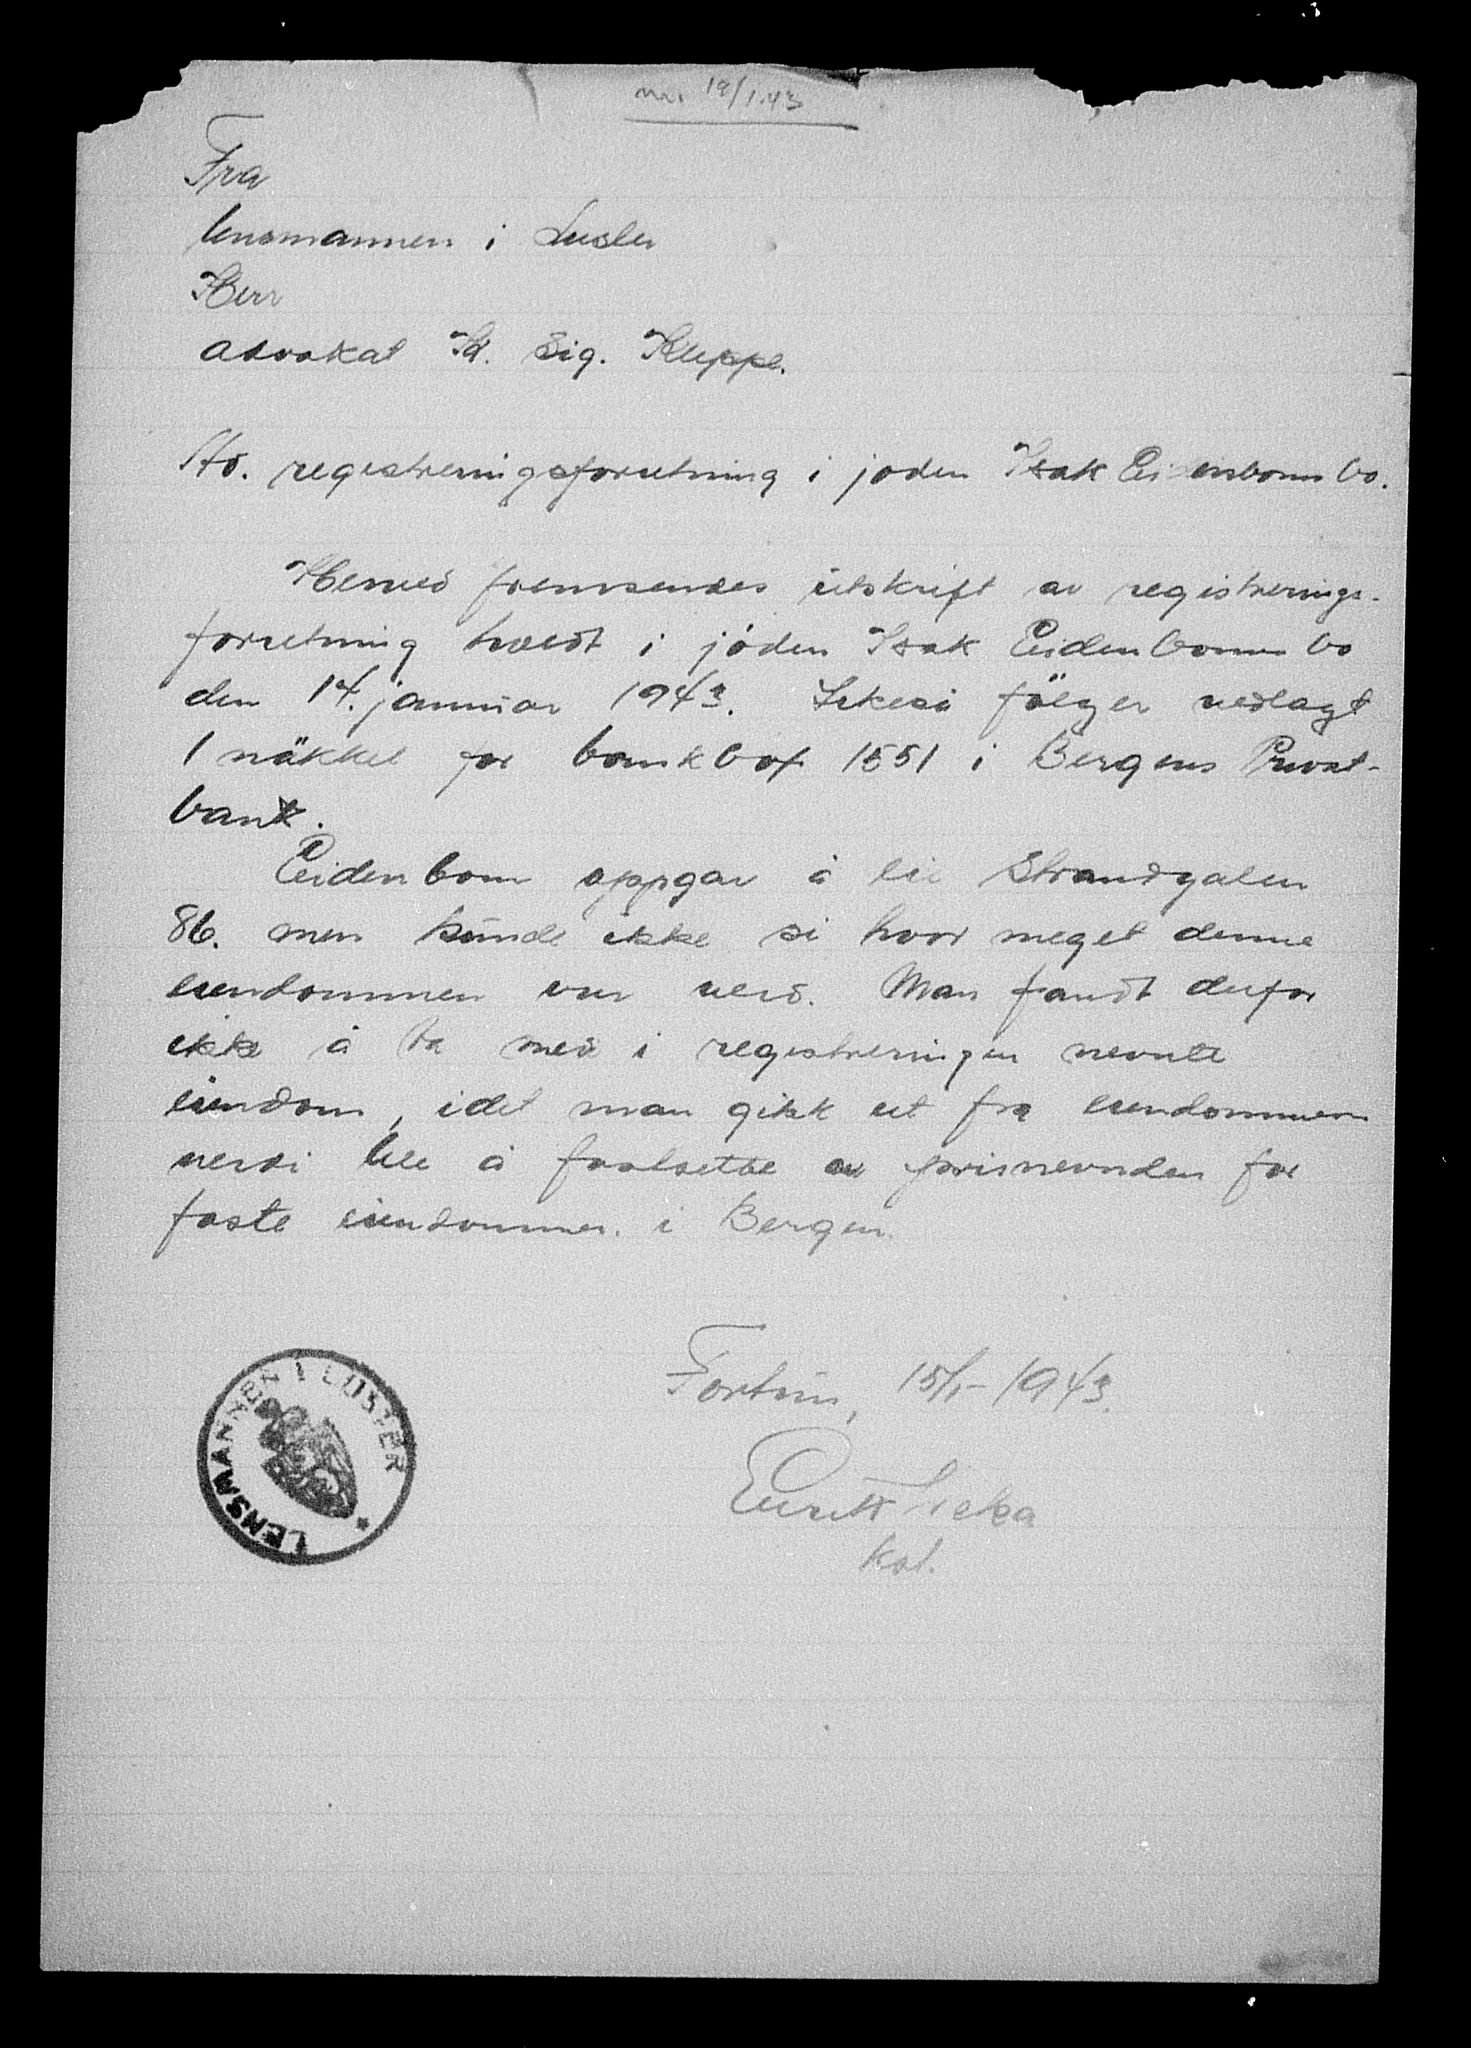 18/1.43
Fra
lensmannen i Luster
Herr
advokat Kr. Sig. Kleppe.
Ad. registreringsforretning i jøden Isak Eidenbom bo.
Hermed fremsendes utskrift av registrerings-
forretning holdt i jøden Isak Eidenboms bo
den 14. januar 1943. Likeså følger vedlagt
1 nøkkel for bankbox 1551 i Bergens Privat-
bank.
Eidenbom oppgav å eie Strandgaten
86. men kunde ikke si hvor meget denne
eiendommen var verd. Man fandt derfor
ikke å ta med i registreringen nevnte
eiendom, idet man gikk ut fra eiendommens
verdi ble å fastsette av prisnevnden for
faste eiendommer. i Bergen.
Fortun, 15/1-1943.
LENSMANNEN I LUSTER